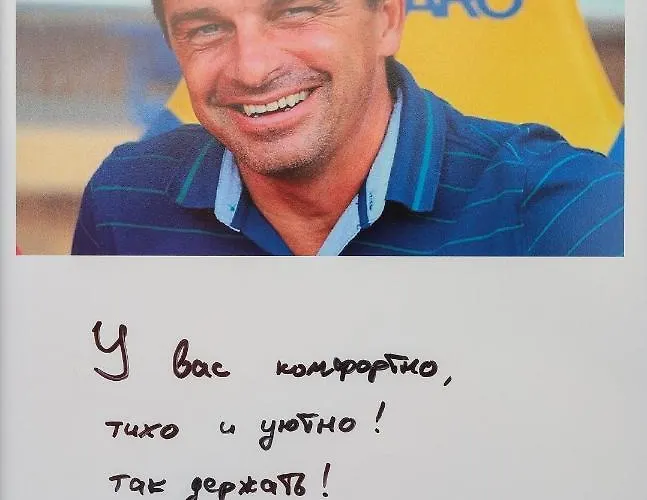 ARO
У вас комфортно,
тихо и уютно!
так держать!